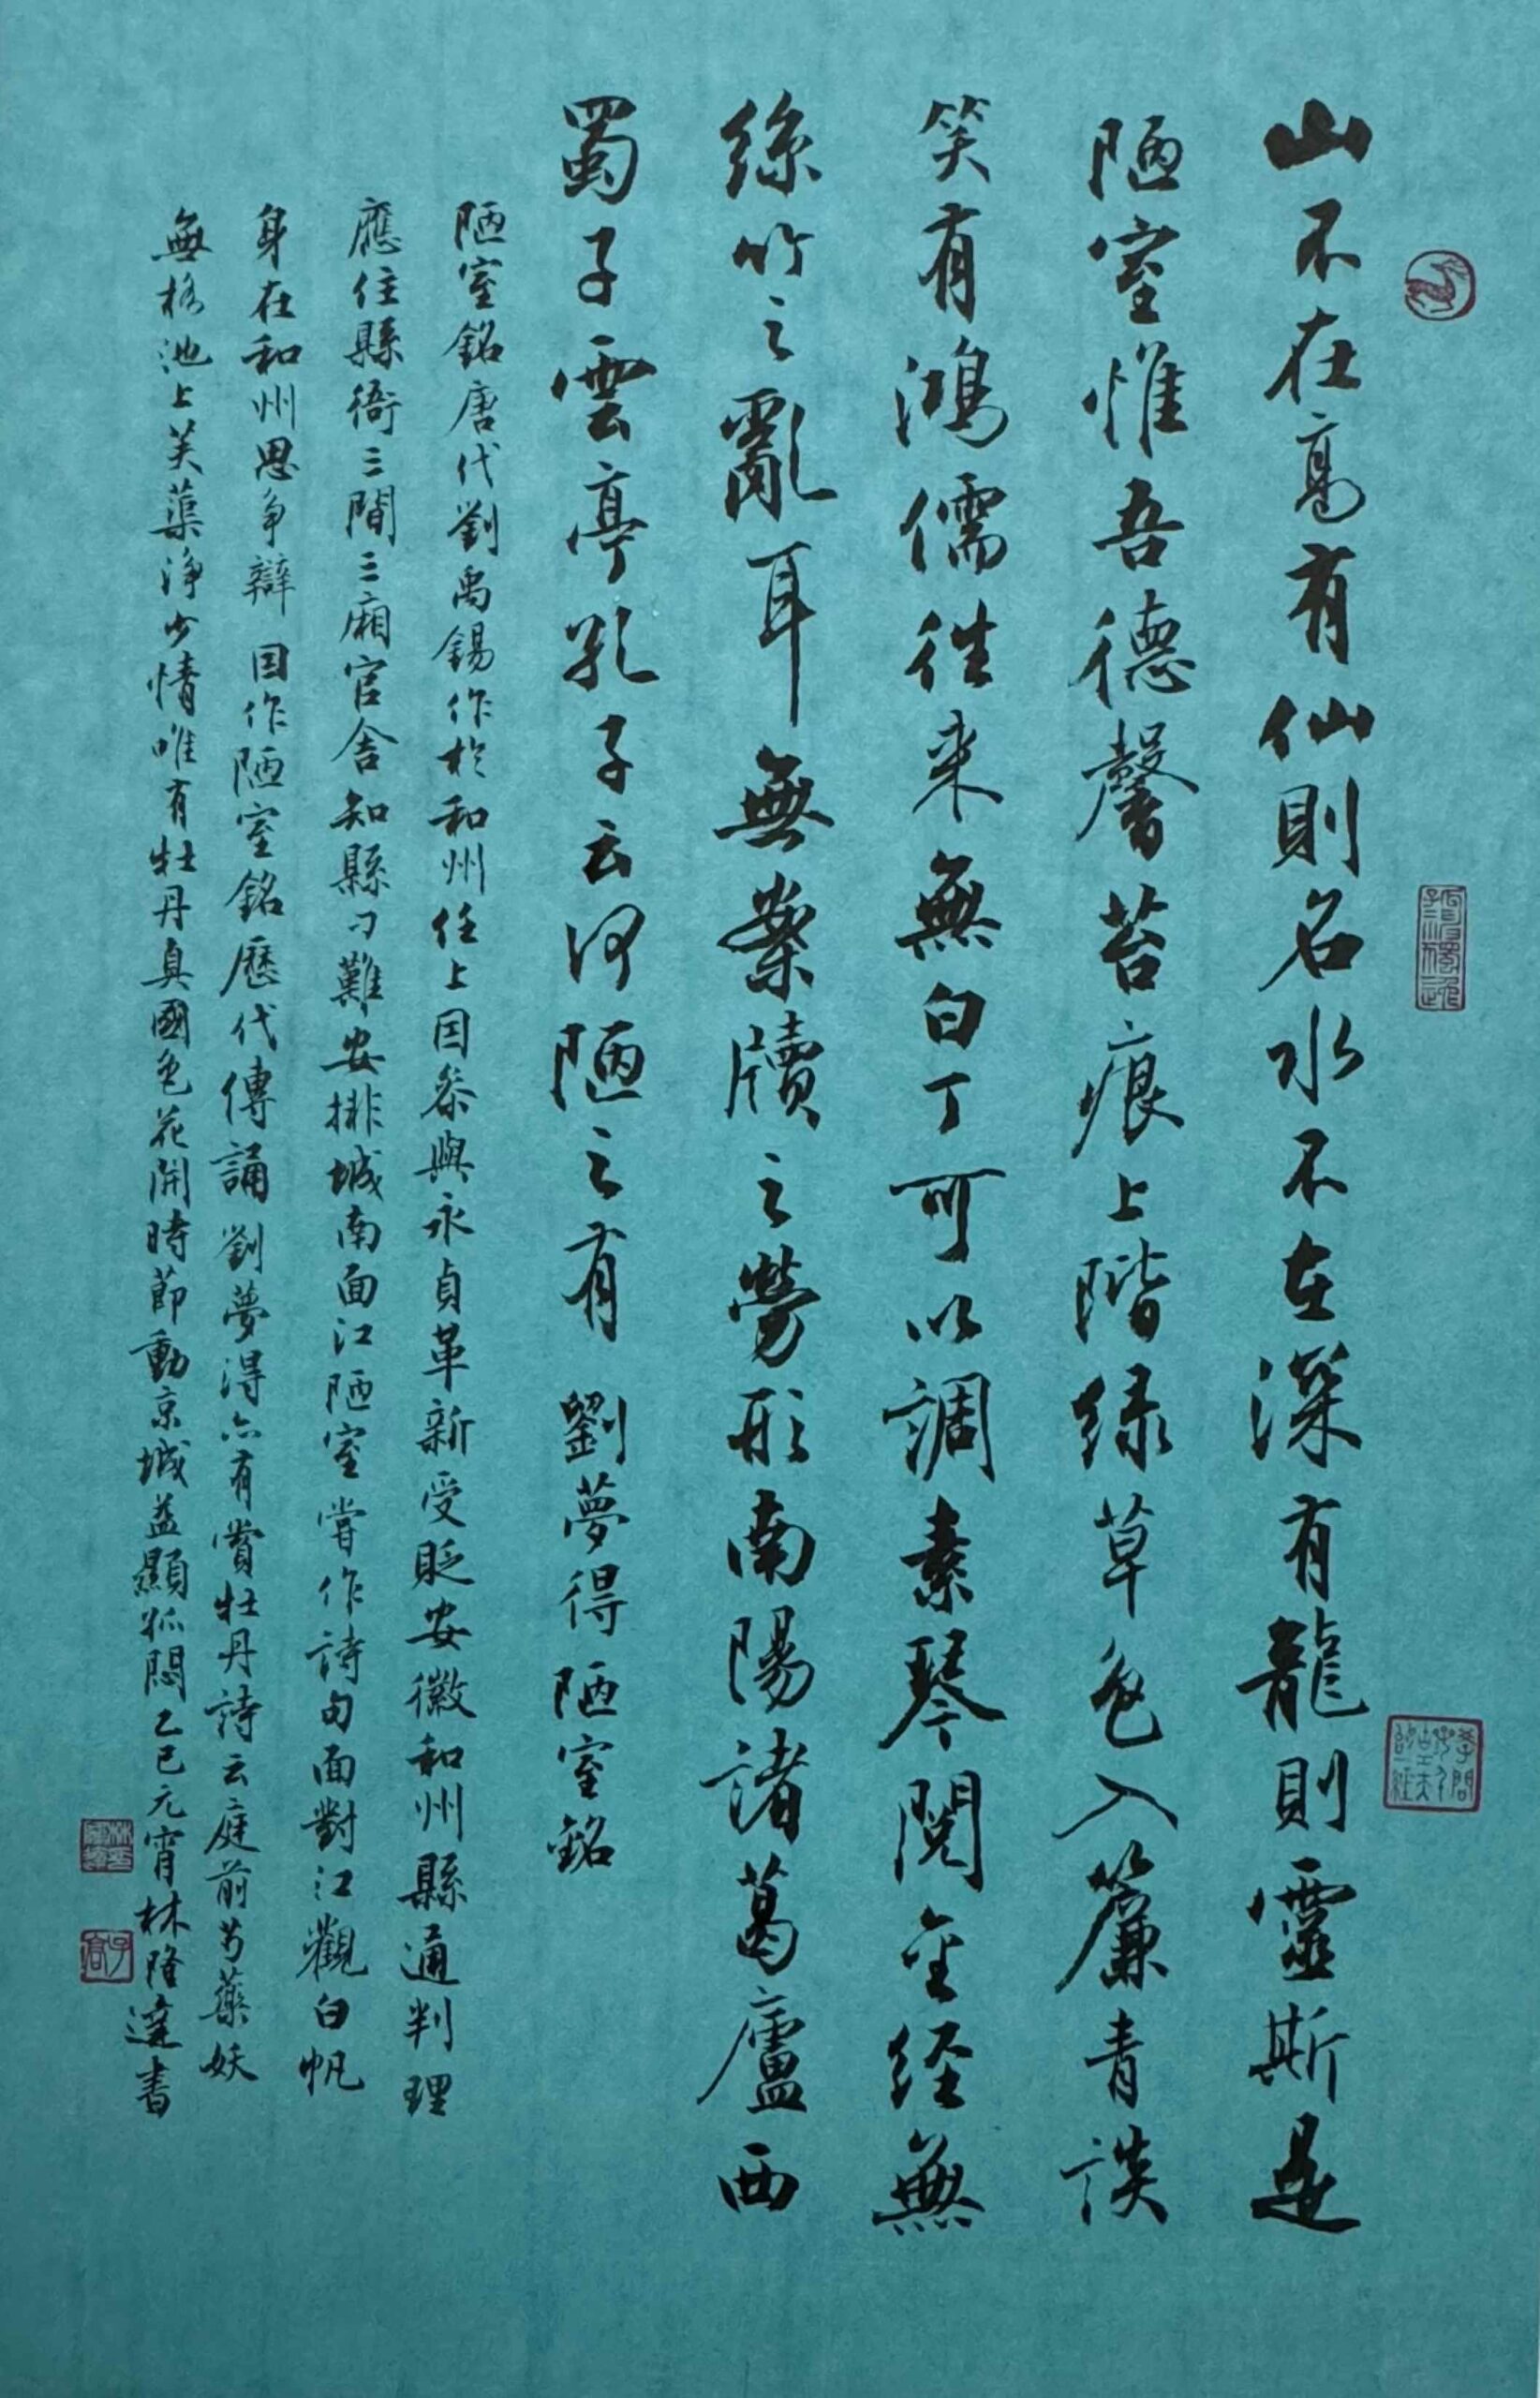 山不在高有仙則名水不在深有龍則靈斯是
陋室惟吾德馨苔痕上階绿草色入簾青談
笑有鴻儒往来無白丁可以調素琴閱金経無
絲竹之亂耳無案牘之勞形南陽諸葛廬西
蜀子雲亭孔子云何陋之有 劉夢得陋室銘
陋室銘唐代劉禹錫作於和州任上因叅與永貞革新受貶安徽和州縣通判理
應住縣衙三間三廂官舍知縣刁難安排城南面江陋室嘗作詩句面對江觀白帆
身在和州思争辯 因作陋室銘歷代傳誦劉夢得亦有賞牡丹詩云庭前芍藥妖
無格池上芙蕖淨少情唯有牡丹真國色花開時節動京城益顯孤悶乙巳元宵林隆達書